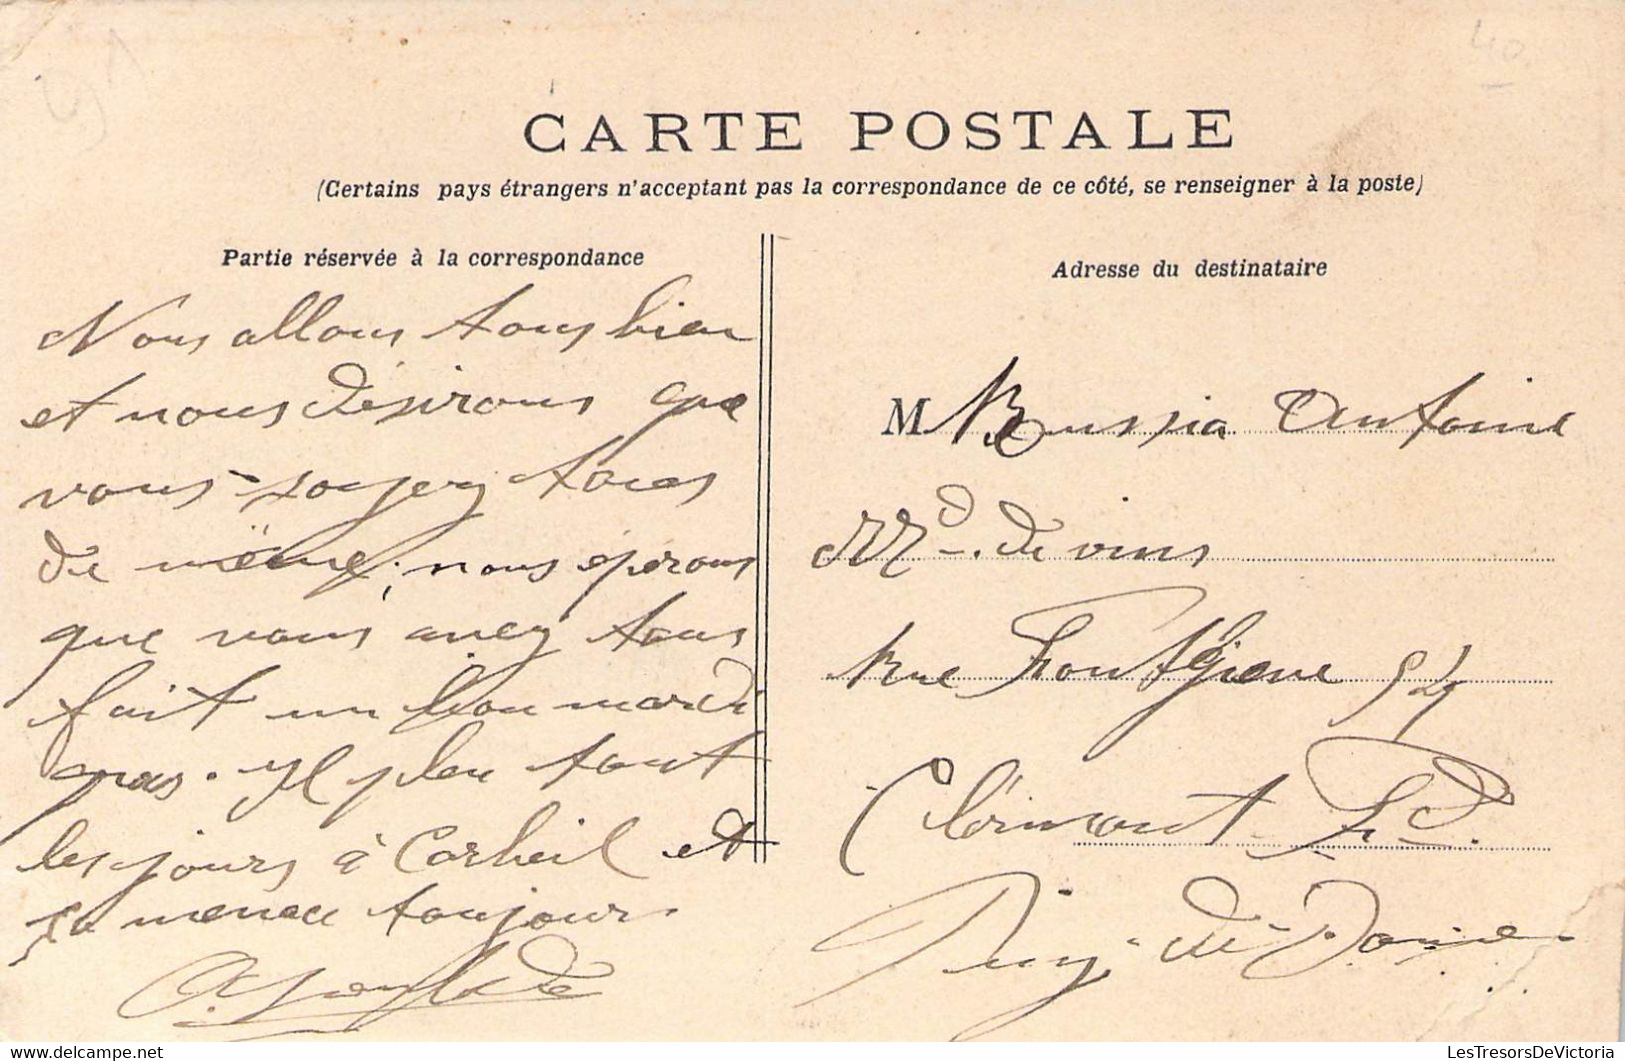 40
CARTE POSTALE
(Certains pays étrangers n'acceptant pas la correspondance de ce côté, se renseigner à la poste)
Partie réservée à la correspondance
Nous allons tous bien
et nous désirons que
vous soyez tous
de même, nous éperons
que vous avez tous
fait un bon mardi
gras. Il pleu tout
les jours à Corbeil et
sa menace toujours
Adresse du destinataire
M Antoine
Md. de vins
Rue Fontgieve
Clérmont Fd.
Puy-de-Dome
LesTresorsDeVictoria